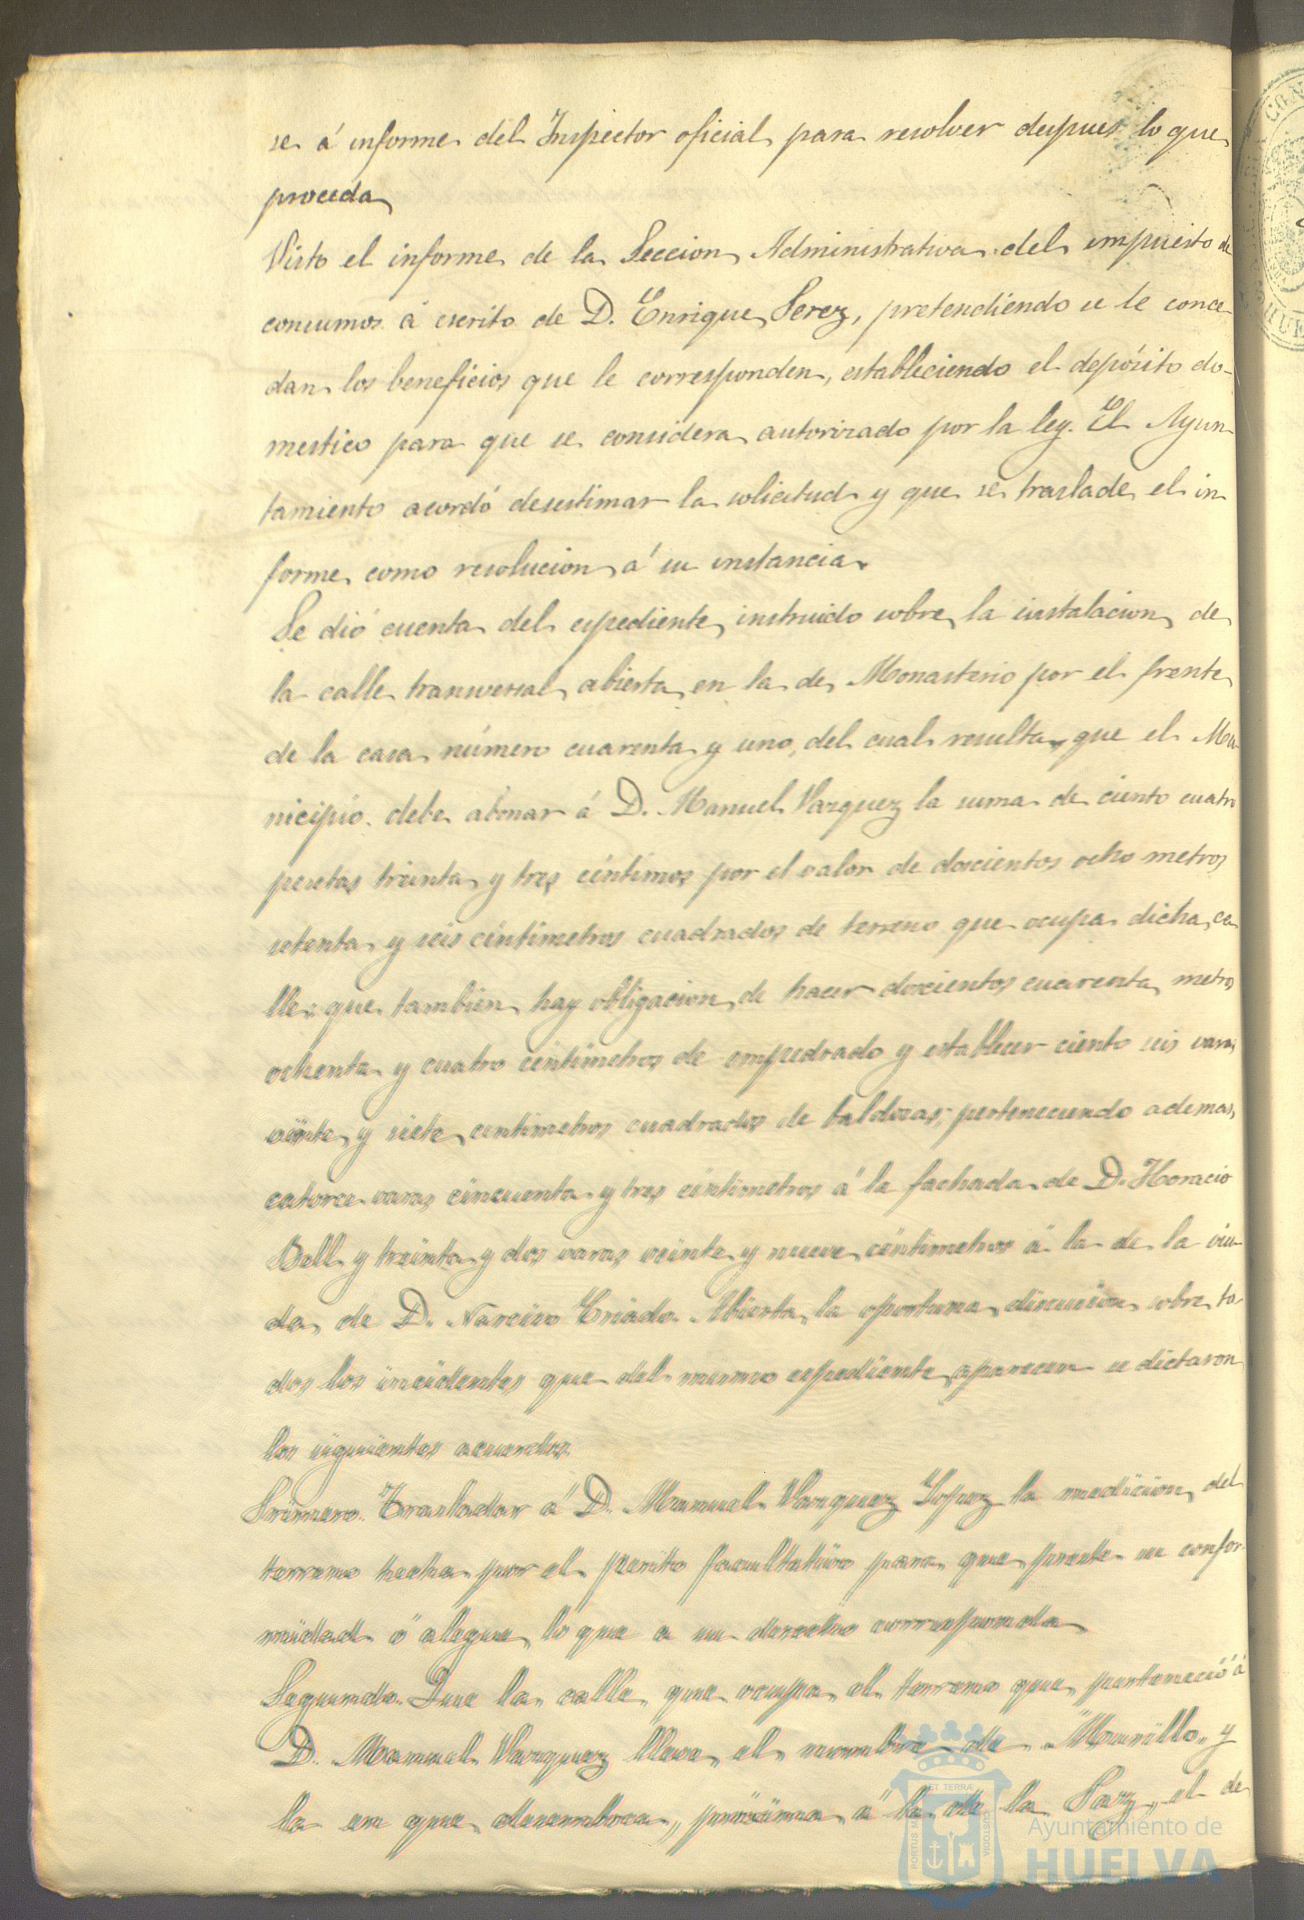 se á informe del Inspector oficial para resolver despues lo que
proceda
Visto el informe de la Seccion Administrativa del impuesto de
consumos á escrito de D. Enrique Perez, pretendiendo se le conce-
dan los beneficios que le corresponden, estableciendo el depósito do-
mestico para que se considera autorizado por la ley. El Ayun-
tamiento acordó desestimar la solicitud y que se traslade el in-
forme como resolucion á su instancia.
Se dió cuenta del espediente instruido sobre la instalacion de
la calle transversal abierta en la de Monasterio por el frente
de la casa número cuarenta y uno, del cual resulta que el Mu-
nicipio debe abonar á D. Manuel Vazquez la suma de ciento cuatro
pesetas treinta y tres céntimos por el valor de doscientos ocho metros
setenta y seis céntimetros cuadrados de terreno que ocupa dicha ca-
lle; que tambien hay obligacion de hacer doscientos cuarenta metros
ochenta y cuatro centimetros de empedrado y establecer ciento seis varas
veinte y siete centimetros cuadrados de baldosas; perteneciendo ademas
catorce varas cincuenta y tres céntimetros á la fachada de D. Horacio
Bell y treinta y dos varas veinte y nueve céntimetros á la de la viu-
da de D. Narciso Criado. Abierta la oportuna discusion sobre to-
dos los incidentes que del mismo espediente aparecen se dictaron
los siguientes acuerdos.
Primero. Trasladar á D. Manuel Vazquez Lopez la medicion del
terreno hecha por el perito facultativo para que preste su confor-
midad ó alegue lo que a su derecho corresponda
Segundo. Que la calle que ocupa el terreno que perteneció á
D. Manuel Vazquez lleve el nombre de "Murillo" y
la en que desemboca, próxima á la de la Paz, el de
PORTUS MARIS ET TERRÆ CUSTODIA
Ayuntamiento de
HUELVA